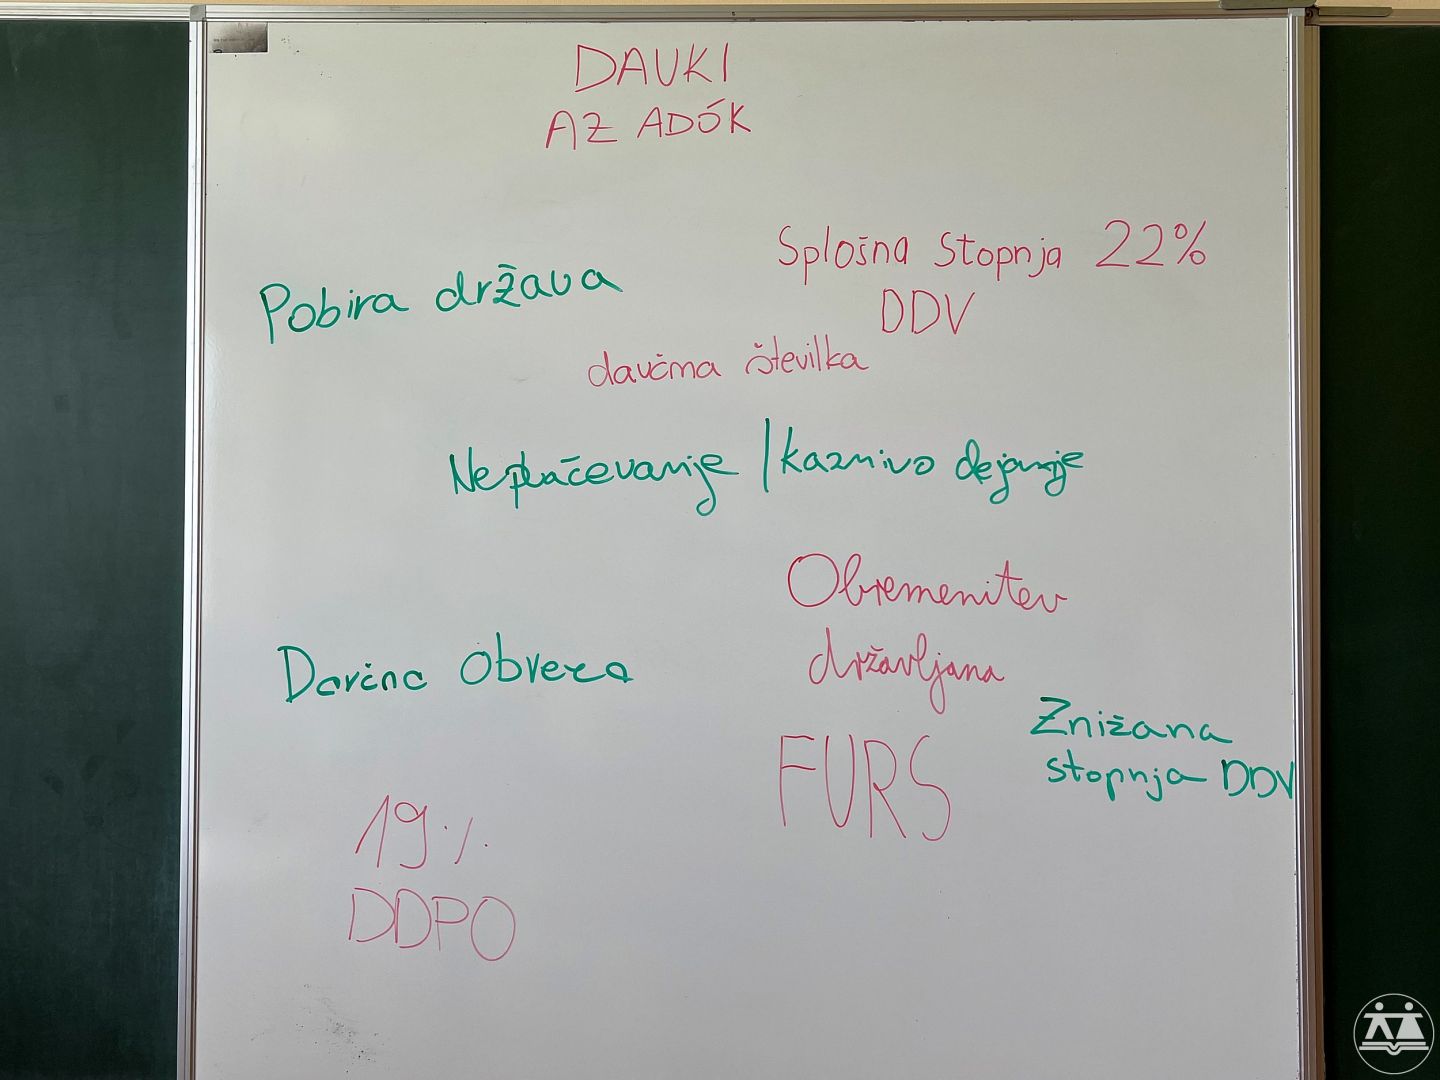 DAVKI
AZ ADÓK
Splošna stopnja 22%
DDV
Pobira država
davčna številka
Neplačevanje / kaznivo dejanje
Obremenitev
državljana
Davčna Obveza
Znižana
stopnja DDV
FURS
19%
DDPO